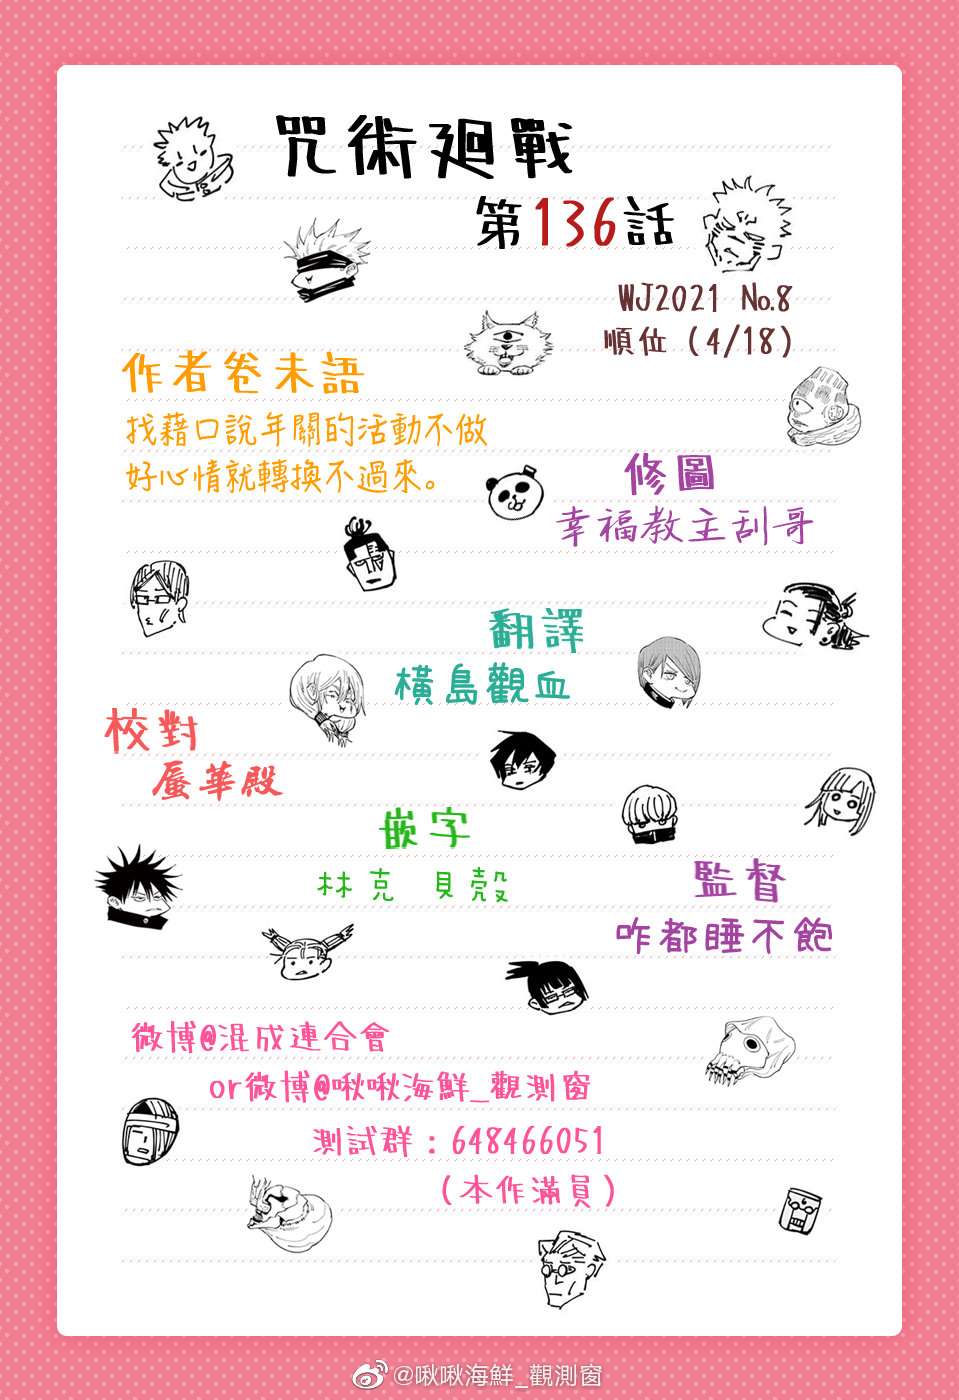 咒術廻戰
第136話
WJ2021 No.8
順位（4/18）
作者卷末語
找藉口說年關的活動不做
好心情就轉換不過來。
修圖
幸福教主刮哥
翻譯
橫島觀血
校對
蜃華殿
嵌字
林克 貝殼
監督
咋都睡不飽
微博@混成連合會
or微博@啾啾海鮮_觀測窗
測試群：648466051
（本作滿員）
@啾啾海鮮_觀測窗